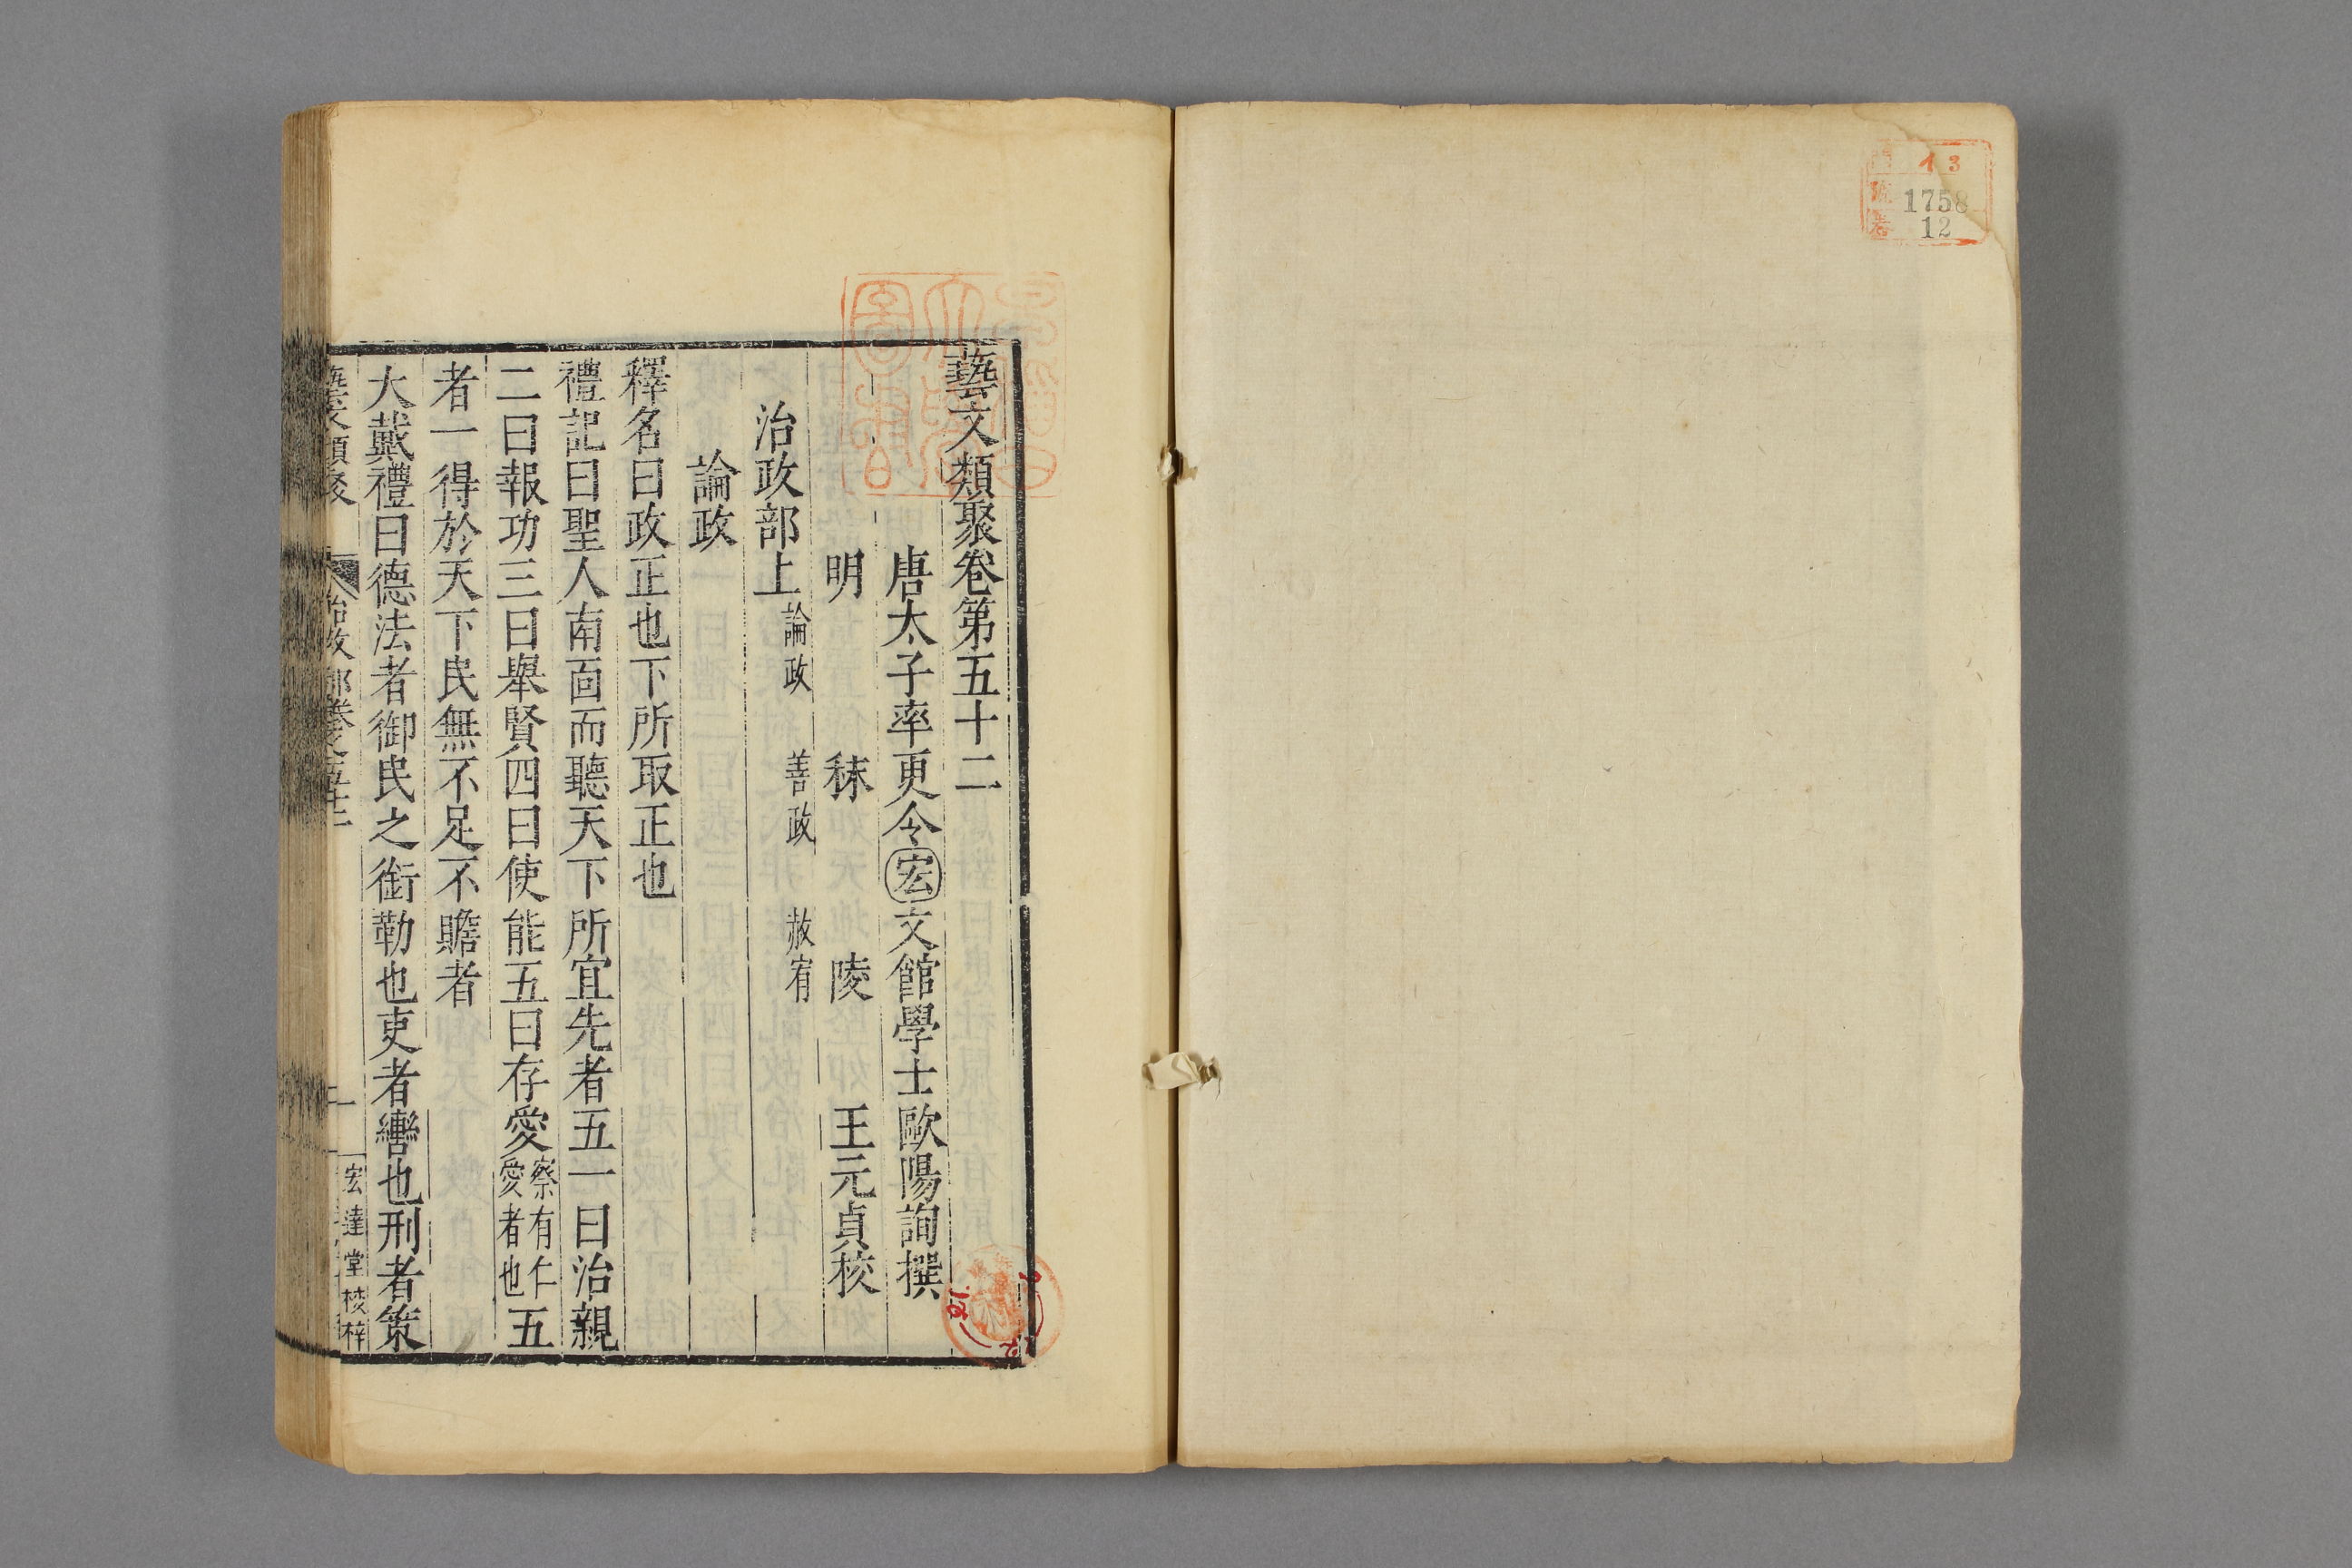 13
1758
12
藝文類聚卷第五十二
唐太子率更令宏文館學士歐陽詢撰
明 秣 陵 王元貞校
治政部上 論政 善政 赦宥
論政
釋名曰政正也下所取正也
禮記曰聖人南面而聽天下所宜先者五一曰治親
二曰報功三曰舉賢四曰使能五曰存愛察有仁愛者也五
者一得於天下民無不足不贍者
大戴禮曰德法者御民之銜勒也吏者轡也刑者策
藝文類聚 治政部卷之五十二 一 宏達堂校梓